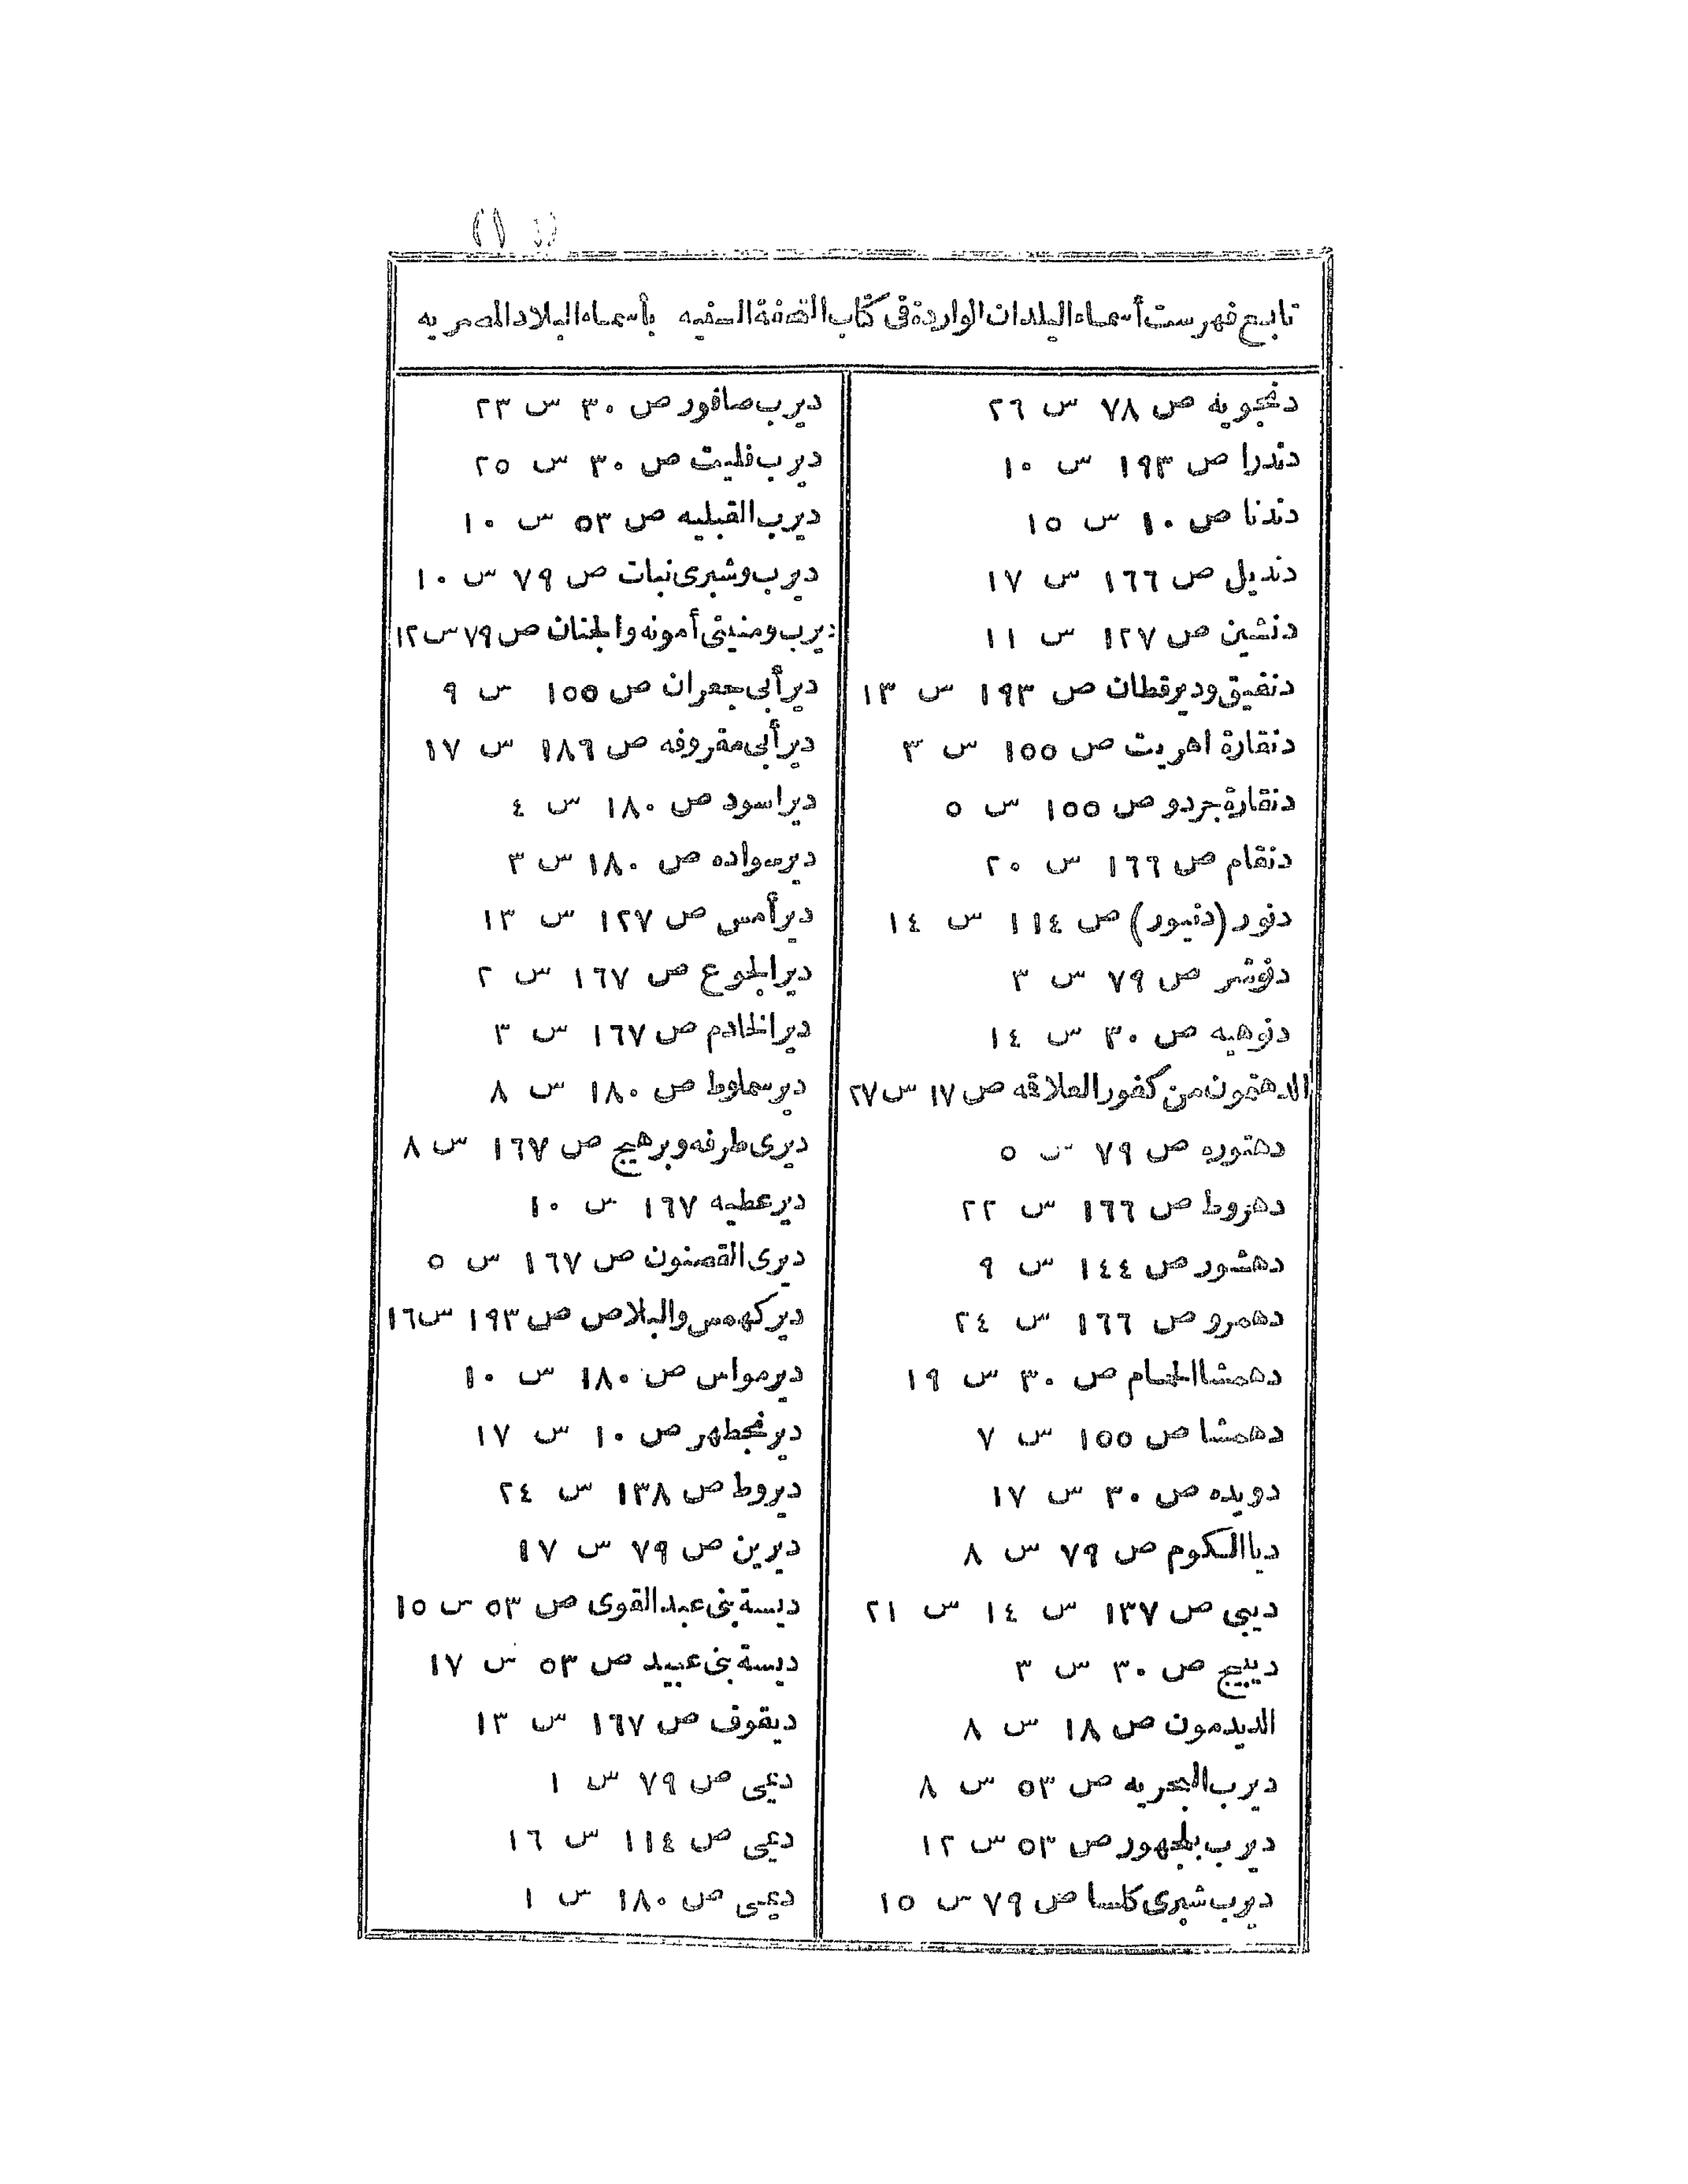 تابع فهرست أسماء البلدان الواردة فى كتاب التحفة السنيه بأسماء البلاد المصريه
دنجويه ص ٧٨ س ٢٦
دندرا ص ١٩٣ س ١٠
دندنا ص ١٠ س ١٥
دنديل ص ١٦٦ س ١٧
دنشين ص ١٢٧ س ١١
دنفيق وديرقطان ص ١٩٣ س ١٣
دنقارة اهريت ص ١٥٥ س ٣
دنقارة جردو ص ١٥٥ س ٥
دنقام ص ١٦٦ س ٢٠
دنور (دنيور) ص ١١٤ س ١٤
دنوشر ص ٧٩ س ٣
دنوهيه ص ٣٠ س ١٤
الدهتمون من كفور العلاقه ص ١٧ س ٢٧
دهتوره ص ٧٩ س ٥
دهروط ص ١٦٦ س ٢٢
دهشور ص ١٤٤ س ٩
دهمرو ص ١٦٦ س ٢٤
دهمشا الحمام ص ٣٠ س ١٩
دهمشا ص ١٥٥ س ٧
دويده ص ٣٠ س ١٧
ديا الكوم ص ٧٩ س ٨
ديبى ص ١٣٧ س ١٤ س ٢١
ديبيج ص ٣٠ س ٣
الديدمون ص ١٨ س ٨
ديرب البحريه ص ٥٣ س ٨
ديرب بلجهور ص ٥٣ س ١٢
ديرب شبرى كلسا ص ٧٩ س ١٥
ديرب صافور ص ٣٠ س ٢٣
ديرب فليت ص ٣٠ س ٢٥
ديرب القبليه ص ٥٣ س ١٠
ديرب وشبرى نبات ص ٧٩ س ١٠
ديرب ومنيتى أمونه والجنان ص ٧٩ س ١٢
ديرأبى جعران ص ١٥٥ س ٩
ديرأبى مقروفه ص ١٨٦ س ١٧
ديراسود ص ١٨٠ س ٤
ديرسواده ص ١٨٠ س ٣
ديرأمس ص ١٢٧ س ١٣
ديرالجوع ص ١٦٧ س ٢
ديرالخادم ص ١٦٧ س ٣
ديرسملوط ص ١٨٠ س ٨
ديرى طرفه وبرهيج ص ١٦٧ س ٨
ديرعطيه ١٦٧ س ١٠
ديرى القصنون ص ١٦٧ س ٥
ديركهمس والبلاص ص ١٩٣ س ١٦
ديرمواس ص ١٨٠ س ١٠
ديرنجطهر ص ١٠ س ١٧
ديروط ص ١٣٨ س ٢٤
ديرين ص ٧٩ س ١٧
ديسة بنى عبد القوى ص ٥٣ س ١٥
ديسة بنى عبيد ص ٥٣ س ١٧
ديقوف ص ١٦٧ س ١٣
ديمى ص ٧٩ س ١
ديمى ص ١١٤ س ١٦
ديمى ص ١٨٠ س ١